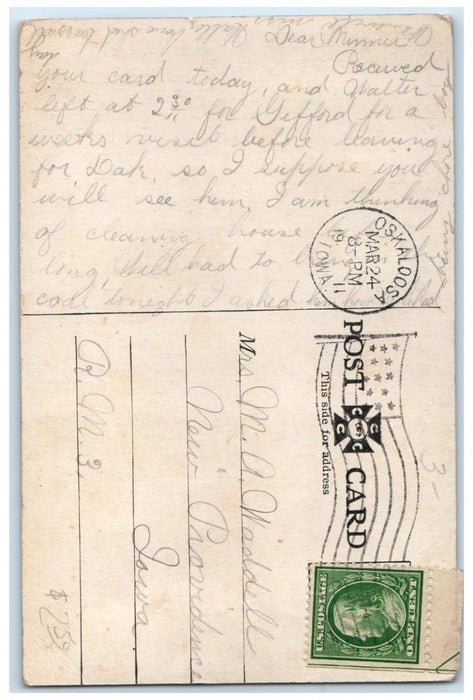 Dear Minnie
Received
your card today, and Walter
left at 2 30 for Gifford for a
weeks visit before leaving
for Dak, so I suppose you
will see him, I am thinking
of cleaning house
long, Will had to
coal, tonight I asked him
OSKALOOSA
MAR 24
8-PM
1911
IOWA
POST CARD
This side for address
Mrs. M. A. Waddell
New Providence
Iowa
R. M 3.
U.S. POSTAGE
ONE CENT
3-
$7.59